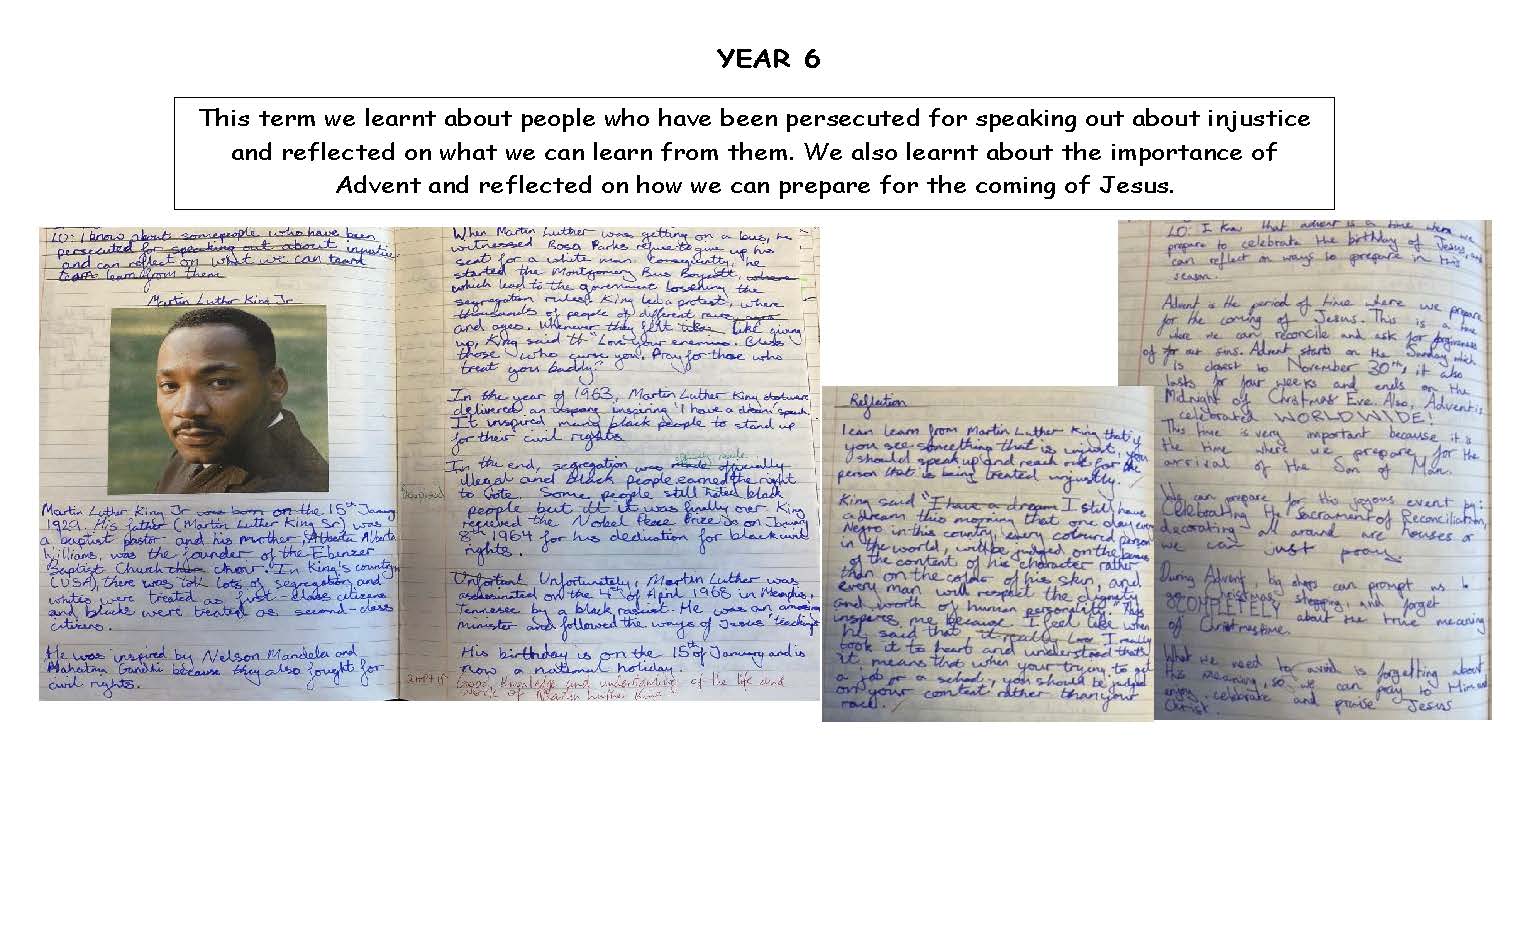 YEAR 6
This term we learnt about people who have been persecuted for speaking out about injustice
and reflected on what we can learn from them. We also learnt about the importance of
Advent and reflected on how we can prepare for the coming of Jesus.
LO: I know about some people who have been
persecuted for speaking out about injustice
and can reflect on what we can
learn from them
Martin Luther King Jr
Martin Luther King Jr was born on the 15th January
1929. His father (Martin Luther King Sr) was
a baptist pastor and his mother, Alberta
Williams, was the founder of the Ebenezer
Baptist Church choir. In King's country
(USA), there was lots of segregation and
whites were treated as first-class citizens
and blacks were treated as second-class
citizens.
He was inspired by Nelson Mandela and
Mahatma Gandhi because they also fought for
civil rights.
When Martin Luther was getting on a bus, he
witnessed Rosa Parks refuse to give up his
seat for a white man. Consequently, he
started the Montgomery Bus Boycott, where
which lead to the government loosening the
segregation rules. King led a protest, where
thousands of people of different races
and ages. Whenever they felt like giving
up, King said "Love your enemies. Bless
those who curse you. Pray for those who
treat you badly."
In the year of 1963, Martin Luther King
delivered an inspiring 'I have a dream' speech.
It inspired many black people to stand up
for their civil rights.
In the end, segregation was made officially
illegal and black people earned the right
to vote. Some people still hated black
people but it was finally over. King
recieved the Nobel Peace Prize on January
8th 1964 for his dedication for black civil
rights.
Unfortunately, Martin Luther was
assassinated on the 4th of April 1968 in Memphis,
Tennessee by a black racist. He was an amazing
minister and followed the ways of Jesus' teachings
His birthday is on the 15th of January and is
now a national holiday.
Good knowledge and understanding of the life and
work of Martin Luther King
Reflection
I can learn from Martin Luther King that if
you see something that is unjust, you
should speak up and reach out for the
person that is being treated unjustly.
King said "I have a dream I still have
a dream this morning that one day every
Negro in this country, every coloured person
in the world, will be judged on the basis
of the content of his character rather
than on the color of his skin, and
every man will respect the dignity
and worth of human personality." This
inspires me because I feel like when
he said that it really I really
took it to heart and understood that
it means that when your trying to get
a job or a school, you should be judged
on your content rather than your
race.
LO: I know that advent is a time were we
prepare to celebrate the birthday of Jesus, and
can reflect on ways to prepare in this
season.
Advent is the period of time where we prepare
for the coming of Jesus. This is a time
where we can reconcile and ask for forgiveness
of for our sins. Advent starts on the Sunday which
is closest to November 30th, it also
lasts for four weeks and ends on the
Midnight of Christmas Eve. Also, Advent is
celebrated WORLDWIDE!
This time is very important because it is
the time where we prepare for the
arrival of the Son of Man.
We can prepare for this joyous event by:
Celebrating the Sacrament of Reconciliation,
decorating all around are houses or
we can just pray.
During Advent, big shops can prompt us to
go Christmas shopping, and forget
COMPLETELY about the true meaning
of Christmastime.
What we need to avoid is forgetting about
this meaning, so we can pray to Him and
enjoy, celebrate and praise Jesus
Christ.